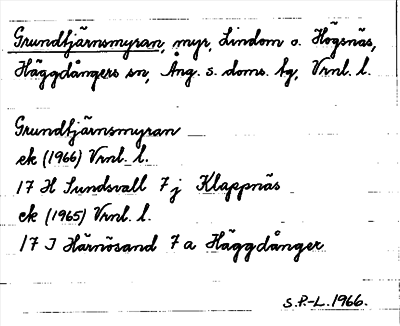 Grundtjärnsmyran, myr, Lindom o. Högsnäs,
Häggdångers sn, Ång. s. doms. tg, Vrnl. l.
Grundtjärnsmyran
ek (1966) Vrnl. l.
17 H Sundsvall 7 j Klappnäs
ek (1965) Vrnl. l.
17 I Härnösand 7 a Häggdånger
S.P.-L. 1966.